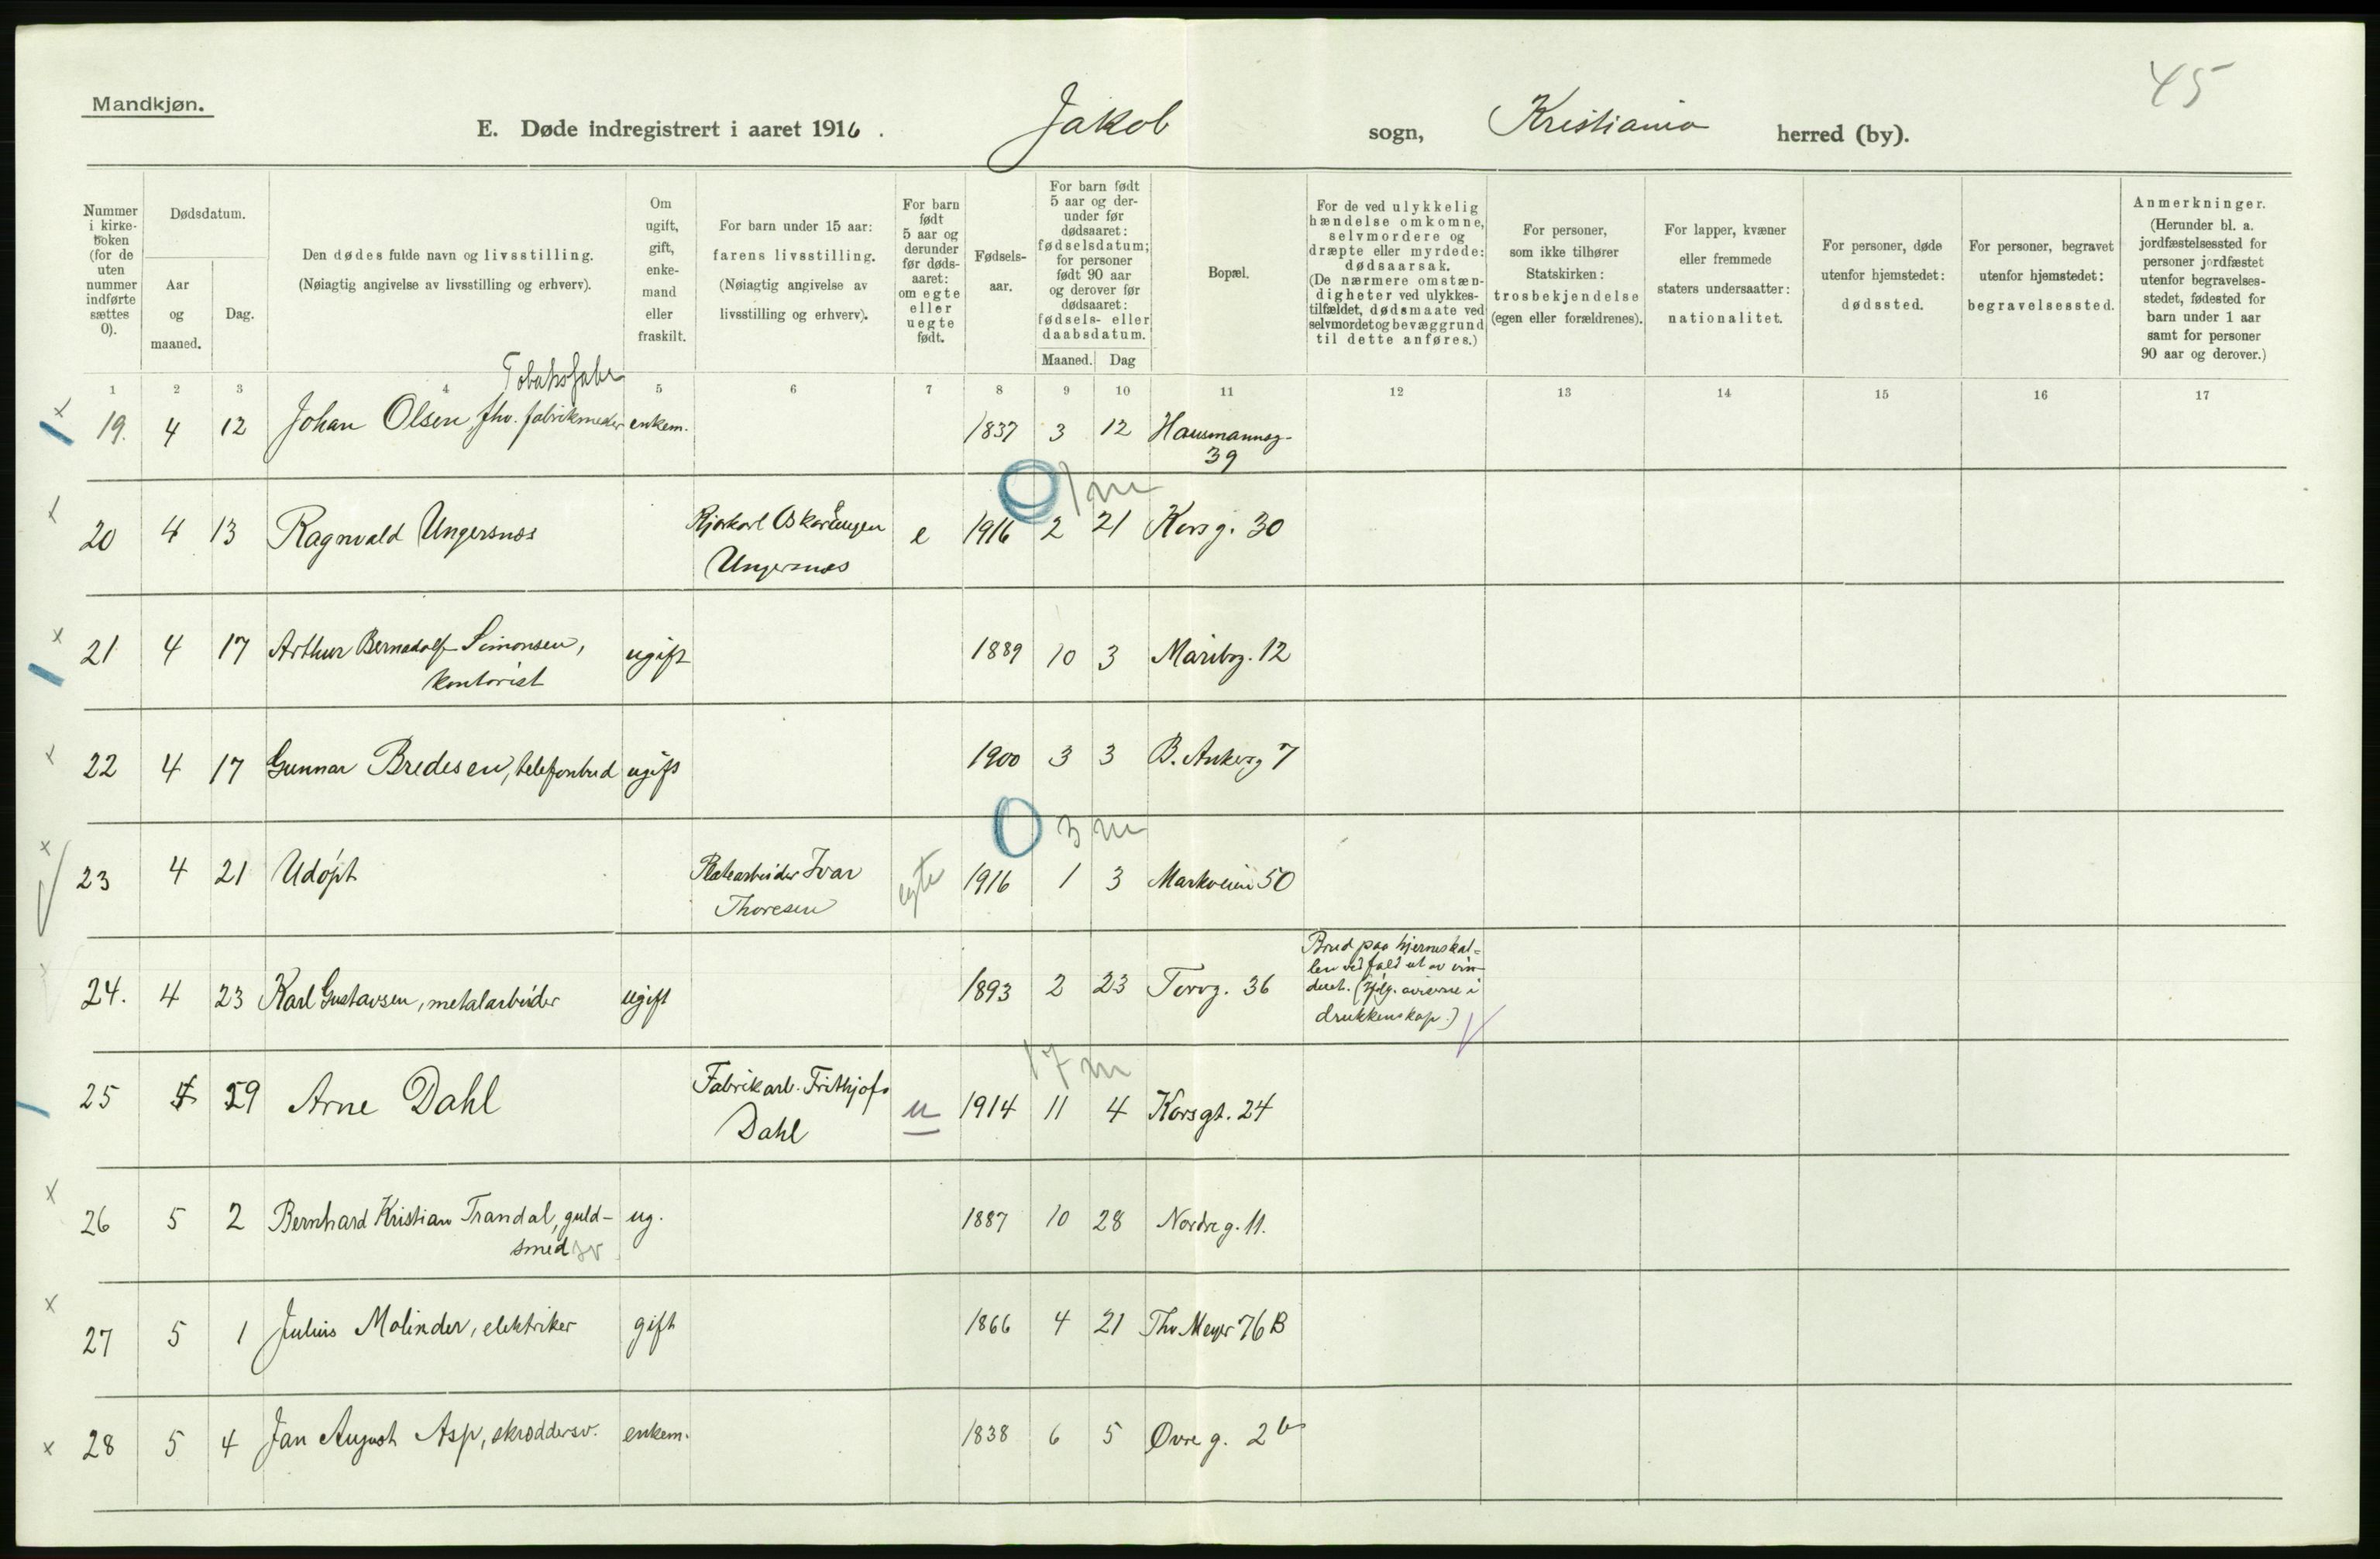 45
Mandkjøn.
E. Døde indregistrert i aaret 1916. Jakob sogn, Kristiania herred (by).
Nummer i kirke- boken (for de uten nummer indførte sættes 0).
Dødsdatum.
Aar og maaned.
Dag.
Den dødes fulde navn og livsstilling.
(Nøiagtig angivelse av livsstilling og erhverv).
Om ugift, gift, enke- mand eller fraskilt.
For barn under 15 aar: farens livsstilling.
(Nøiagtig angivelse av livsstilling og erhverv).
For barn født 5 aar og derunder før døds- aaret: om egte eller uegte født.
Fødsels- aar.
For barn født 5 aar og der- under før dødsaaret: fødselsdatum; for personer født 90 aar og derover før dødsaaret: fødsels- eller daabsdatum.
Maaned. Dag
Bopæl.
For de ved ulykkelig hændelse omkomne, selvmordere og dræpte eller myrdede: dødsaarsak.
(De nærmere omstæn- digheter ved ulykkes- tilfældet, dødsmaate ved selvmordet og bevæggrund til dette anføres.)
For personer, som ikke tilhører Statskirken: trosbekjendelse (egen eller forældrenes).
For lapper, kvæner eller fremmede staters undersaatter: nationalitet.
For personer, døde utenfor hjemstedet: dødssted.
For personer, begravet utenfor hjemstedet: begravelsessted.
Anmerkninger.
(Herunder bl. a. jordfæstelsessted for personer jordfæstet utenfor begravelses- stedet, fødested for barn under 1 aar samt for personer 90 aar og derover.)
1 2 3 4 5 6 7 8 9 10 11 12 13 14 15 16 17
Tobaksfabr
19. 4 12 Johan Olsen, fhv. fabrikmester enkem. 1837 3 12 Hausmannsg.
39
1 m
20 4 13 Ragnvald Ungersnes Kjørkarl Oskar Eugen e 1916 2 21 Korsg. 30
Ungersnes
21 4 17 Arthur Bernadolf Simonsen, ugift 1889 10 3 Maribog. 12
kontorist
22 4 17 Gunnar Bredesen, telefonbud ugift 1900 3 3 B. Ankersg 7
3 m
23 4 21 Udøpt Platearbeider Ivar egte 1916 1 3 Markveien 50
Thoresen
24. 4 23 Karl Gustavsen, metalarbeider ugift 1893 2 23 Torvg. 36 Brud paa hjerneskal-
len ved fald ut av vin-
duet. (Ifølg. aviserne i
drukkenskap.)
17 m
25 4 29 Arne Dahl Fabrikarb. Frithjof u 1914 11 4 Korsgt. 24
Dahl
26 5 2 Bernhard Kristian Trandal, guld- ug. 1887 10 28 Nordre g. 11.
smed sv
27 5 1 Julius Molinder, elektriker gift 1866 4 21 Thv Meyer 76 B
28 5 4 Jan August Asp, skræddersv. enkem. 1838 6 5 Øvre g. 2 b